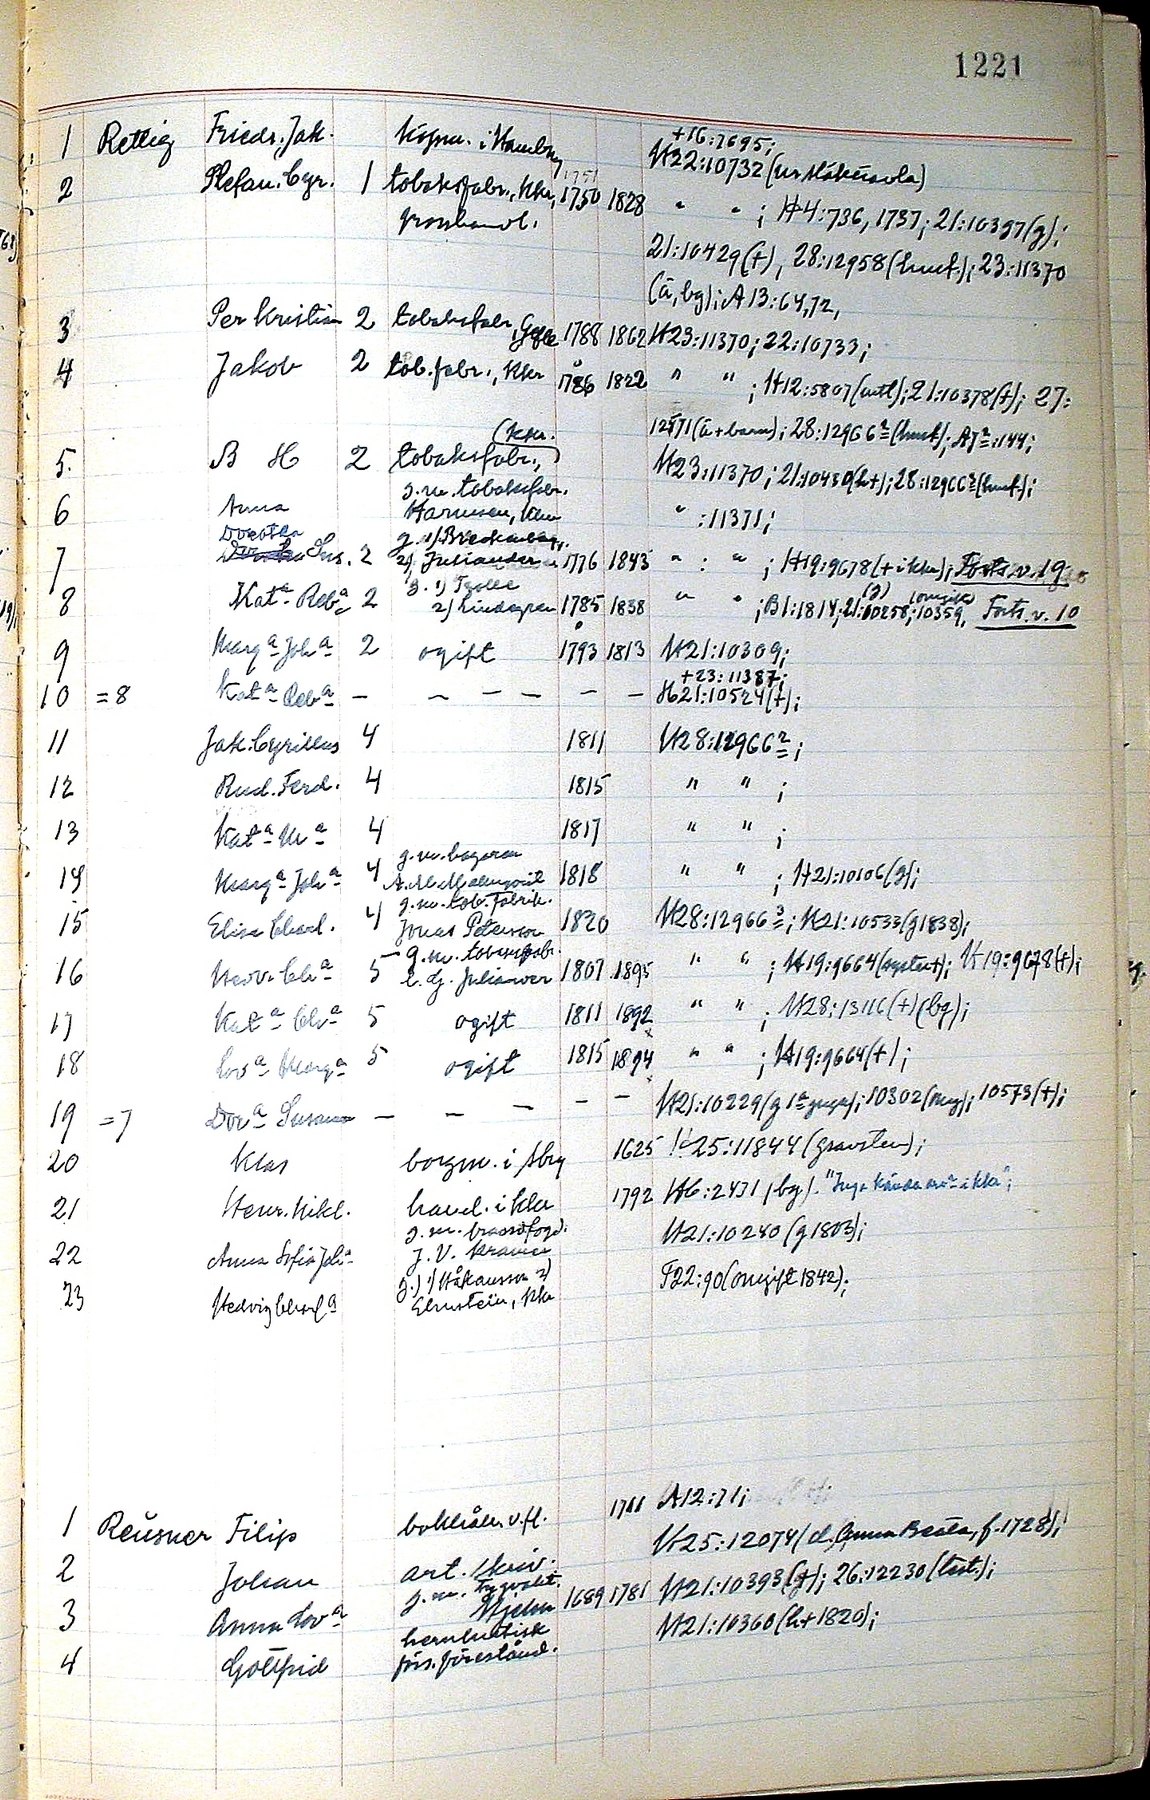 1221
1 Rettig Friedr. Jak. köpm. i Hamburg +16:7695;
H22:10732 (ur Håkansola)
2 Stefan. Cyr. 1 tobaksfabr., Kkr, 1751 1750 1828 " " ; H4:736, 1737; 21:10397(g);
grosshandl. 21:10429(+), 28:12958(huuf.); 23:11370
(ä, bg); A13:64,72,
3 Per Kristian 2 tobaksfabr, Gefle 1788 1862 H23:11370; 22:10733;
4 Jakob 2 tob.fabr., Kkr 1786 1822 " " ; H12:5807(autl); 21:10378(+); 27:
(ä+barn); 28:12966 (huuf);
5. B H 2 tobaksfabr., (Kkr. H23:11370; 21:10430(h+); 28:12966
6 Anna g.m. tobaksfabr. " :11371;
7 Dorotea Sus. 2 g. 1) 2) Juliander 1776 1843 " : " ; H19:9678(+ i kkr); Forts. v. 19
8 Kat:a Reb:a 2 g. 1) 2) Lindegren 1785 1838 " " ; B1:1814; 21:10258; (g) 10359, (omgift) Forts. v. 10
9 Marg:a Joh:a 2 ogift 1793 1813 H21:10309;
+23:11387;
10 =8 Kat:a Reb:a – – – – – – H21:10524(+);
11 Jak. Cyrillus 4 1811 H28:12966 2;
12 Rud. Ferd. 4 1815 " " ;
13 Kat:a M:a 4 1817 " " ;
14 Marg:a Joh:a 4 g.m. bagaren A. M. Malmqvist 1818 " " ; H21:10106(g);
15 Elisa Charl. 4 g.m. tob. fabrik. Jonas Peterson 1820 H28:12966 3; H21:10533(g1838);
16 Hedv. Ch:a 5 g.m. tobaksfabr. C. G. Juliander 1807 1895 " " ; H19:9664(syster+); H19:9678(+);
17 Kat:a Ch:a 5 ogift 1811 1892 " " ; H28:13116(+)(bg);
18 Lov:a Marg:a 5 ogift 1815 1894 " " ; H19:9664(+);
19 =7 Dor:a Susanna – – – – – H21:10229(g 1:a ggn); 10302(omg); 10573(+);
20 Klas borgm. i Åbg 1625 H25:11844 (gravsten);
21 Henr. Nikl. handl. i Kkr 1792 H6:2431 (bg). "Inga kända arv. i kkr";
22 Anna Sofia Joh:a g.m. brandfogd. J. V. Kramer H21:10240 (g1803);
23 Hedvig Charl:a g.) 1) Håkansson 2) Ehrnstein, Kkr F22:90(omgift 1842);
1 Reusner Filip bokhåll. v. fl. 1711 A12:71;
H25:12074 (d. Anna Beata, f. 1728);
2 Johan art. skriv.
3 Anna Lov:a g.m. Hjelm 1689 1781 H21:10393(g); 26:12230(test.);
4 Gottfrid hernhutisk förs. förestånd. H21:10360(h+1820);